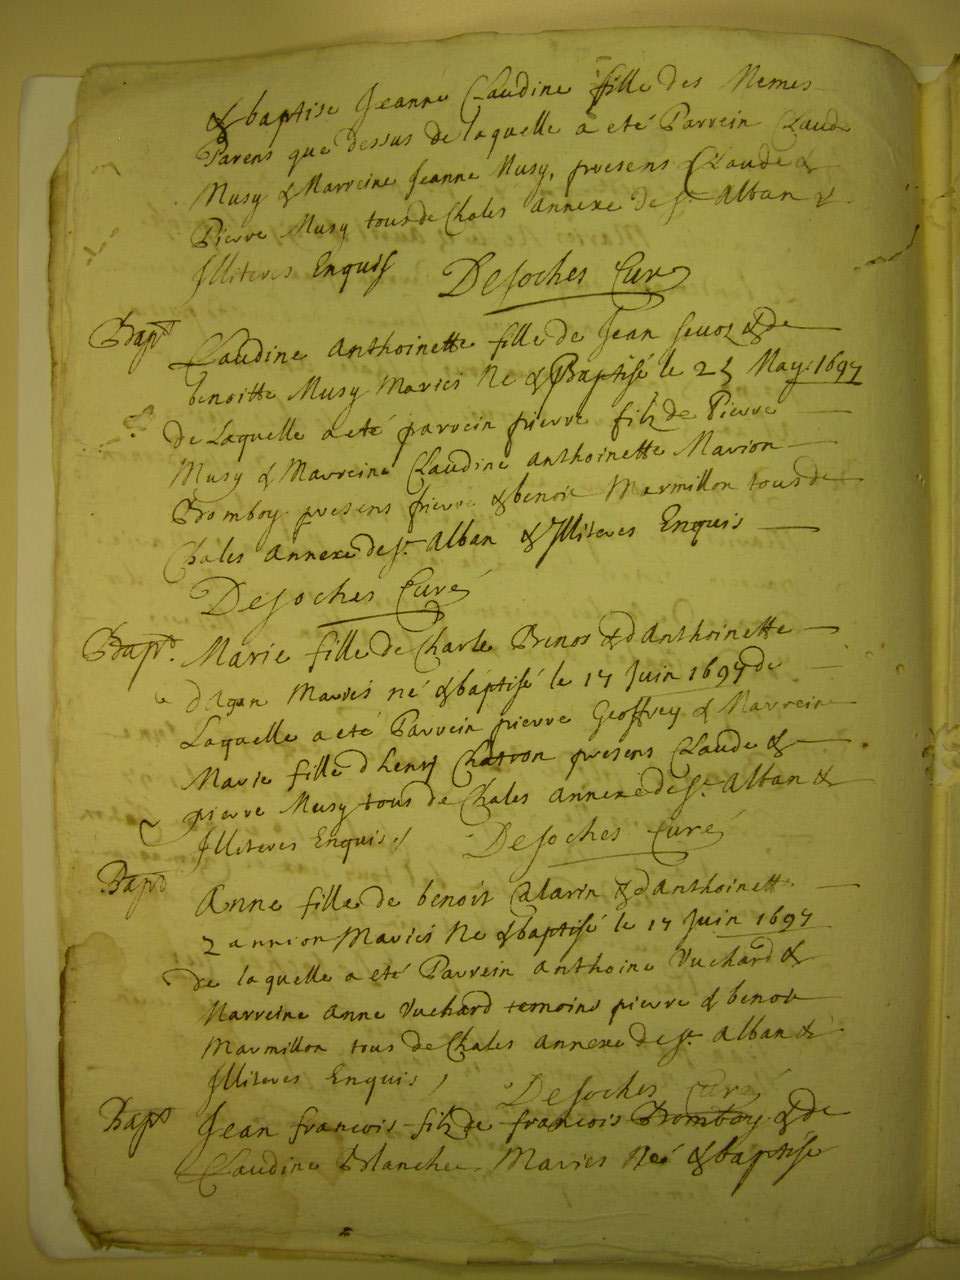 & baptise Jeanne Claudine fille des Memes
Parens que dessus de laquelle a eté Parrein Claude
Musy & Marreine Jeanne Musy, presens Claude &
Pierre Musy tous de Chales annexe de St Alban &
Illiteres Enquis Desoches Curé
Bapt Claudine Anthoinette fille de Jean & de
benoitte Musy Mariés Né & Baptisé le May 1697
de Laquelle a eté parrein pierre filz de Pierre
Musy & Marreine Claudine anthoinette Marion
Bromboy presens pierre & benoit Marmillon tous de
Chales annexe de St Alban & Illiteres Enquis
Desoches Curé
Bapt. Marie fille de Charle & d Anthoinette
Mariés né & baptisé le 17 Juin 1697 de
Laquelle a eté Parrein pierre Geoffrey & Marreine
Marie fille d henry Chatron presens Claude &
pierre Musy tous de Chales annexe de St Alban &
Illiteres Enquis Desoches Curé
Bapt Anne fille de benoit & d Anthoinette
Mariés Né & baptisé le 17 Juin 1697
de laquelle a eté Parrein anthoine Vuchard &
Marreine anne Vuchard temoins pierre & benoit
Marmillon tous de Chales annexe de St Alban &
Illiteres Enquis Desoches Curé
Bapt Jean francois filz de francois Bromboy & de
Claudine Blanche Mariés Né & baptisé